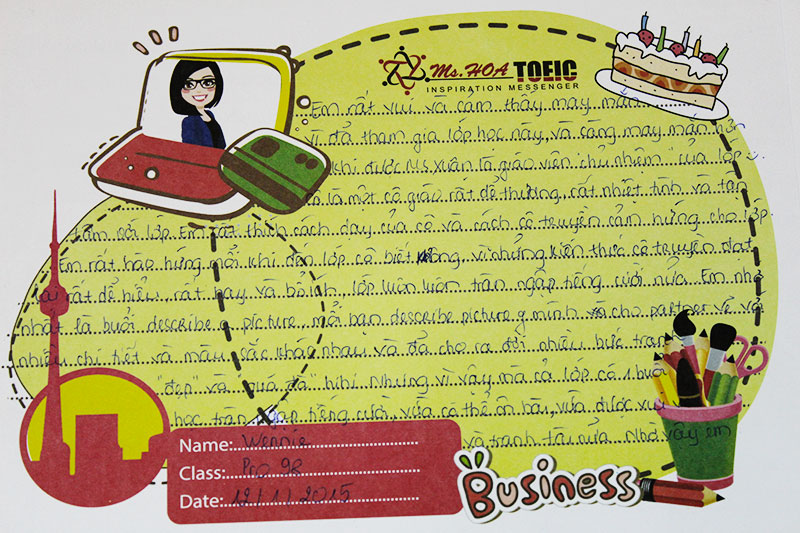 Ms. HOA TOEIC
INSPIRATION MESSENGER
Em rất vui và cảm thấy may mắn
vì đã tham gia lớp học này, và càng may mắn hơn
khi được Ms Xuân là giáo viên chủ nhiệm của lớp
Cô là một cô giáo rất dễ thương, rất nhiệt tình và tận
tâm với lớp. Em rất thích cách dạy của cô và cách cô truyền cảm hứng cho lớp.
Em rất hào hứng mỗi khi đến lớp cô biết không, vì những kiến thức cô truyền đạt
lại rất dễ hiểu, rất hay và bổ ích lớp luôn luôn tràn ngập tiếng cười nữa. Em nhớ
nhất là buổi describe a picture, mỗi bạn describe picture mình cho partner vẽ với
nhiều chi tiết và màu sắc khác nhau và đã cho ra đời nhiều bức tranh
"đẹp" và "quá đã" hihi. Nhưng vì vậy mà cả lớp có 1 buổi
học tràn ngập tiếng cười, vừa có thể ôn bài, vừa được xem
và tranh tài nữa. Nhờ vậy em
Name: Wennie
Class: Pro 92
Date: 12/11/2015
Business